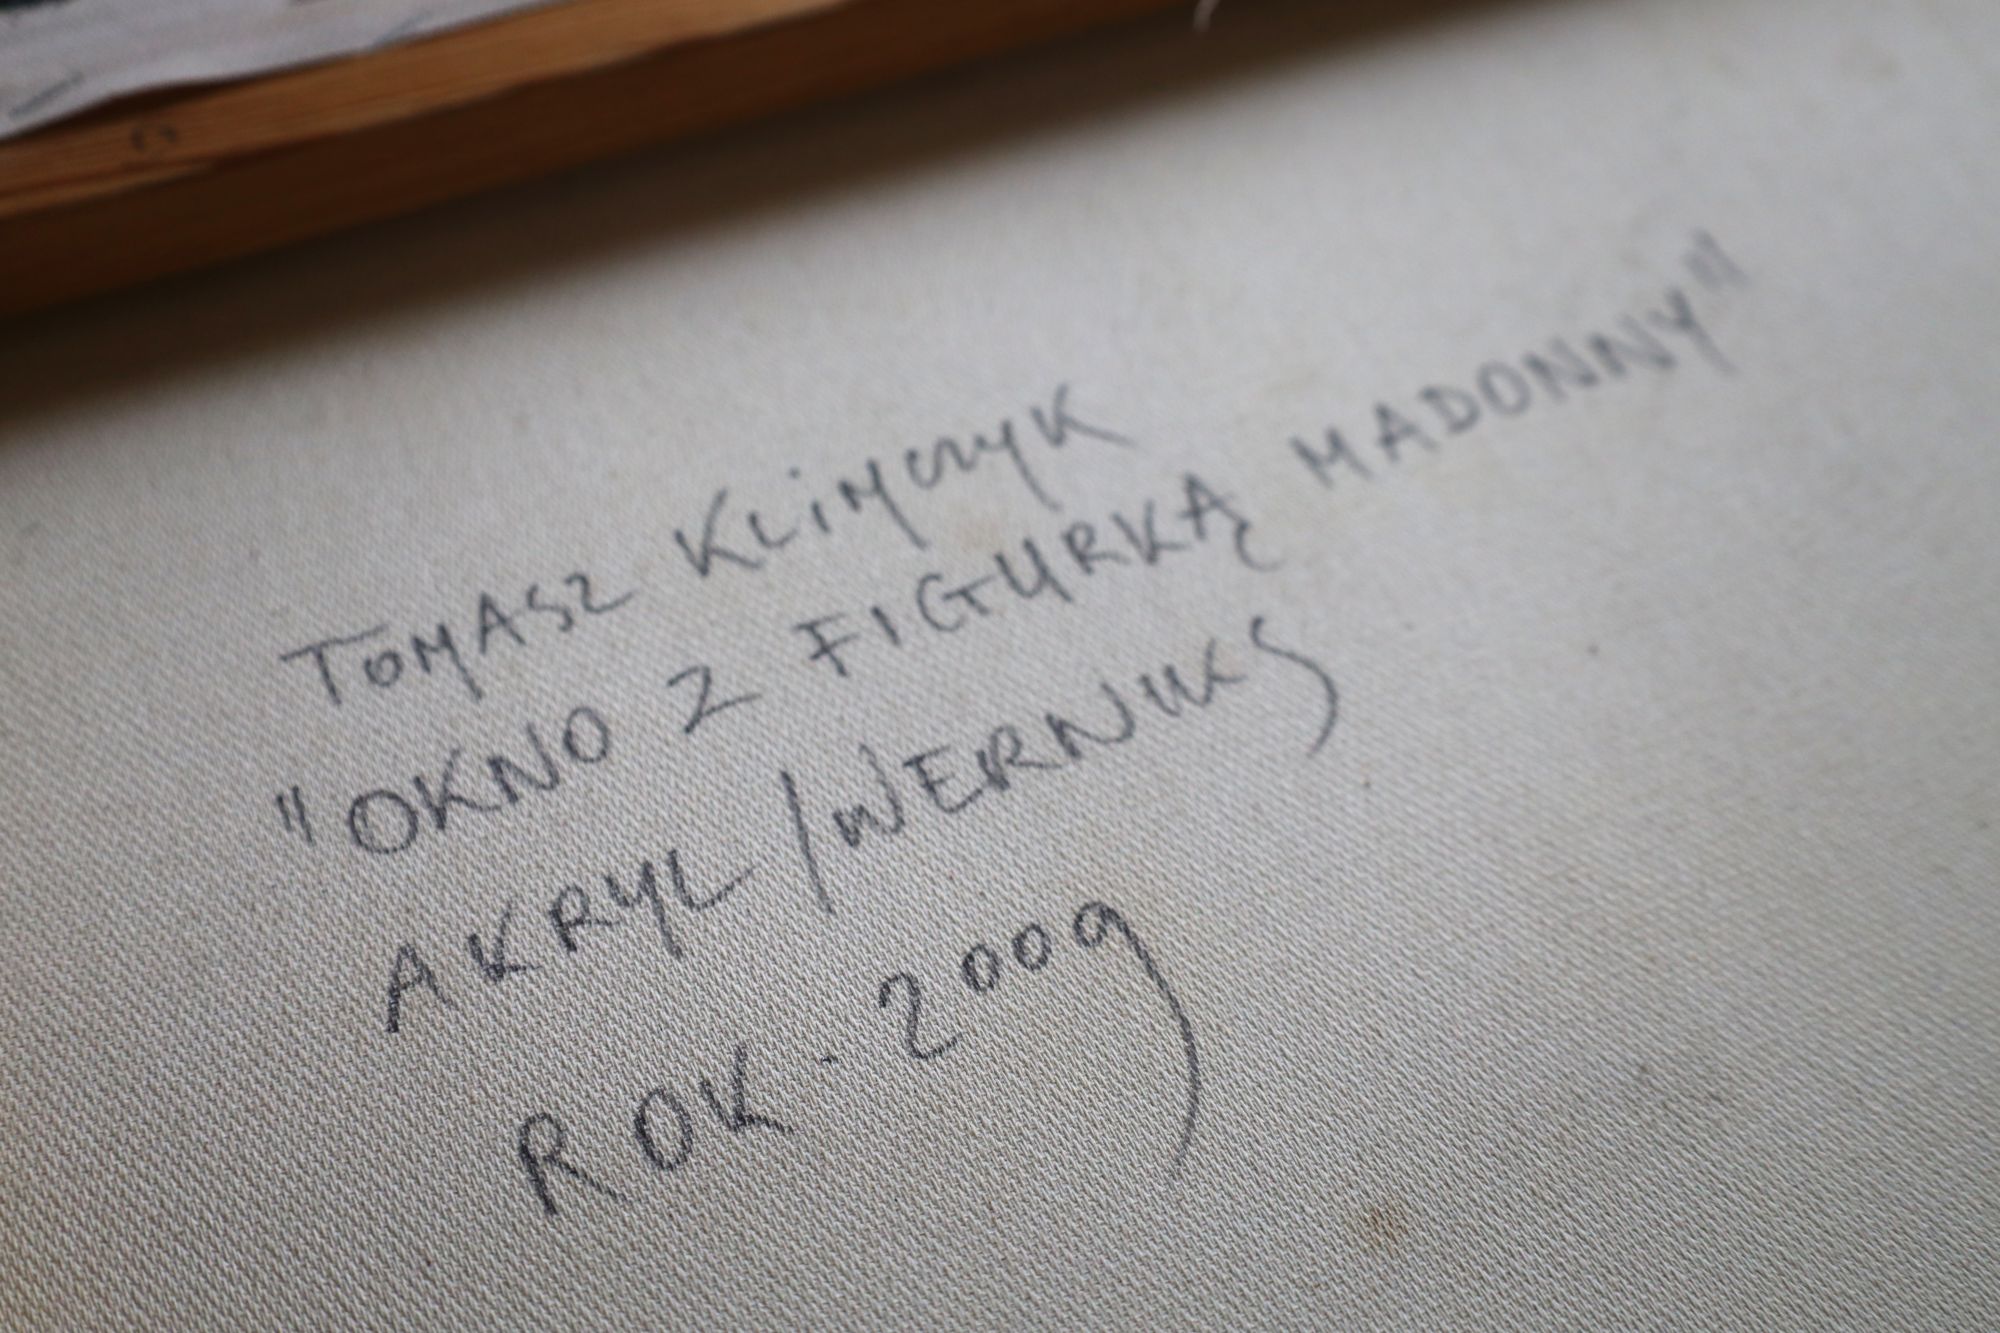 TOMASZ KLIMCZYK
"OKNO Z FIGURKĄ MADONNY"
AKRYL/WERNIKS
ROK. 2009